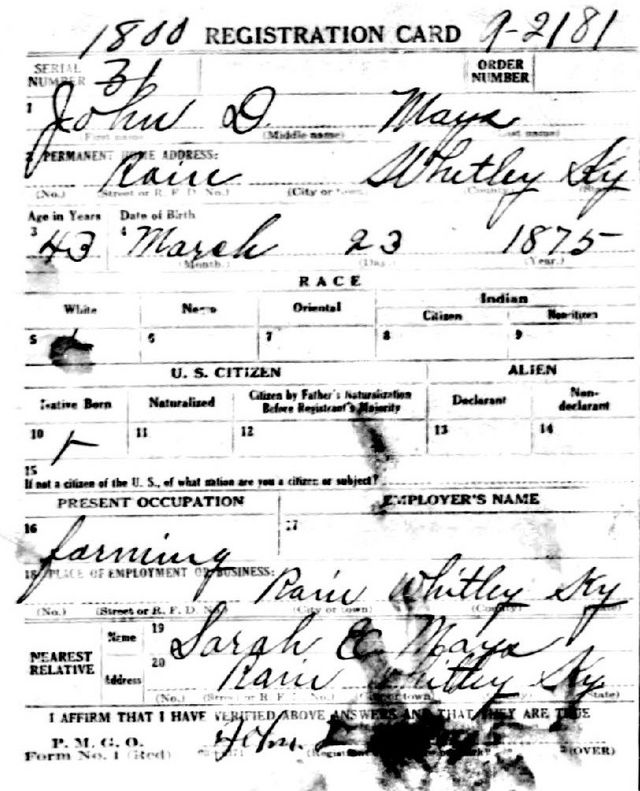 1800 REGISTRATION CARD A-2181
SERIAL NUMBER 31 ORDER NUMBER
1 John D Mays
First name) (Middle name) (Last name)
2 PERMANENT HOME ADDRESS:
Rain Whitley Ky
(No.) (Street or R. F. D. No.) (City or town) (County) (State)
Age in Years Date of Birth
3 43 4 March 23 1875
(Month.) (Day.) (Year.)
RACE
White Negro Oriental Indian
Citizen Noncitizen
5 6 7 8 9
U. S. CITIZEN ALIEN
Native Born Naturalized Citizen by Father's Naturalization Before Registrant's Majority Declarant Non-declarant
10 11 12 13 14
15
If not a citizen of the U. S., of what nation are you a citizen or subject?
PRESENT OCCUPATION EMPLOYER'S NAME
16 farming 17
18 PLACE OF EMPLOYMENT OR BUSINESS:
Rain Whitley Ky
(No.) (Street or R. F. D. No.) (City or town) (County) (State)
NEAREST RELATIVE Name 19 Sarah E Mays
Address 20 Rain Whitley Ky
(No.) (Street or R. F. D. No.) (City or town) (County) (State)
I AFFIRM THAT I HAVE VERIFIED ABOVE ANSWERS AND THAT THEY ARE TRUE
P. M. G. O.
Form No. 1 (Red) John (OVER)